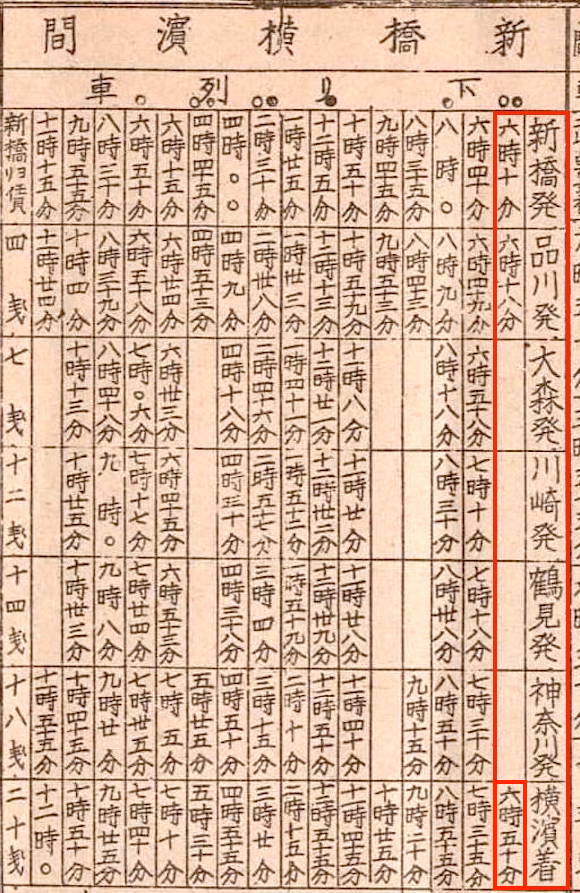 新橋横濱間
下り列車
新橋発 品川発 大森発 川崎発 鶴見発 神奈川発 横濱着
六時十分 六時十八分 六時五十分
六時四十分 六時四十九分 六時五十八分 七時十分 七時十八分 七時三十分 七時三十五分
八時〇 八時九分 八時十八分 八時三十分 八時卅八分 八時五十分 八時五十五分
八時三十五分 八時四十三分 九時十五分 九時二十分
九時四十五分 九時五十三分 十時廿五分
十時五十分 十時五十九分 十一時八分 十一時廿分 十一時廿八分 十一時四十分 十一時四十五分
十二時五分 十二時十三分 十二時廿一分 十二時卅二分 十二時卅九分 十二時五十分 十二時五十五分
一時廿五分 一時卅三分 一時四十一分 一時五十二分 一時五十九分 二時十分 二時十五分
二時三十分 二時卅八分 二時四十六分 二時五十七分 三時四分 三時十五分 三時廿分
四時〇〇 四時九分 四時十八分 四時三十分 四時三十八分 四時五十分 四時五十五分
四時四十五分 四時五十三分 五時廿五分 五時三十分
六時十五分 六時廿四分 六時卅三分 六時四十五分 六時五十三分 七時五分 七時十分
六時五十分 六時五十八分 七時〇六分 七時十七分 七時廿四分 七時卅五分 七時四十分
八時三十分 八時三十九分 八時四十八分 九時〇 九時八分 九時廿分 九時廿五分
九時五十五分 十時四分 十時十三分 十時廿五分 十時卅三分 十時四十五分 十時五十分
十一時十五分 十一時廿四分 十一時五十五分 十二時〇
新橋ヨリ賃 四戔 七戔 十二戔 十四戔 十八戔 二十戔